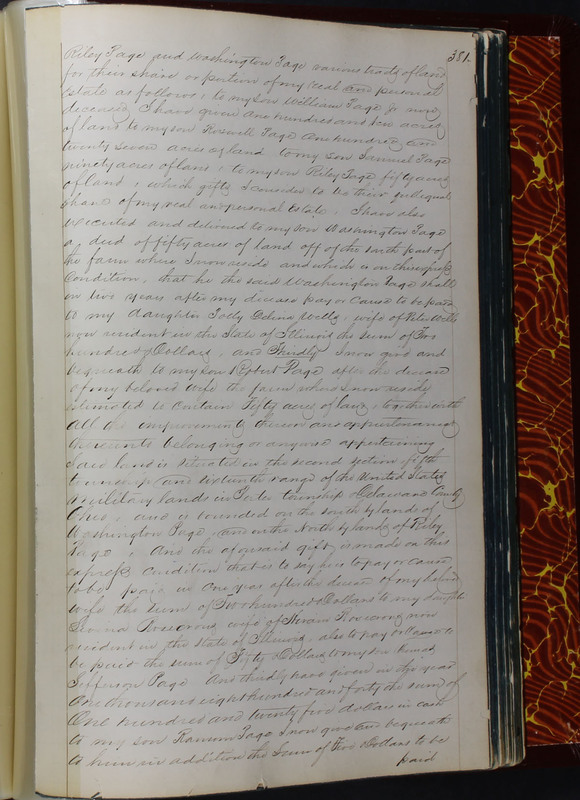 381.
Riley Page and Washington Page various tracts of land
for their share or portion of my real and personal
Estate as follows; to my son William Page Jr now
deceased I have given one hundred and ten acres
of land to my son Roswell Page one hundred and
twenty seven acres of land to my son Samuel Page
ninety acres of land; to my son Riley Page fifty acres
of land; which gifts I consider to be their full equal
share of my real and personal Estate. I have also
executed and delivered to my son Washington Page
a deed of fifty acres of land off of the north part of
the farm where I now reside and which is on this express
condition, that he the said Washington Page shall
in two years after my decease pay or cause to be paid
to my daughter Edna Wells, wife of Wells
now resident in the State of Illinois the sum of Two
hundred Dollars, and Thirdly I now give and
bequeath to my son Robert Page after the decease
of my beloved wife the farm where I now reside
estimated to contain Fifty acres of land, together with
all the improvements thereon and appurtenances
thereunto belonging or anywise appertaining
Said land is situated in the second section fifth
township and sixteenth range of the United States
military land in Porter township Delaware County
Ohio, and is bounded on the south by lands of
Washington Page, and on the North by lands of Riley
Page; And the aforesaid gift is made on this
express condition that is to say he is to pay or cause
to be paid in one year after the decease of my beloved
wife the sum of Two hundred Dollars to my daughter
Rosecrans wife of Hiram Rosecrans now
resident in the State of Illinois, also to pay or cause to
be paid the sum of Fifty Dollars to my son Thomas
Jefferson Page. And thirdly have given in the year
One thousand eight hundred and forty the sum of
One hundred and twenty five dollars in cash
to my son Ransom Page I now give and bequeath
to him in addition the Sum of Five Dollars to be
paid